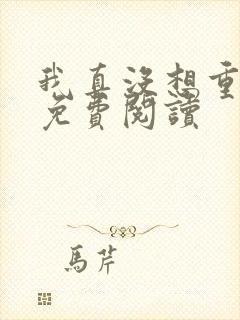 我真沒想重
免費閱讀
馬芹